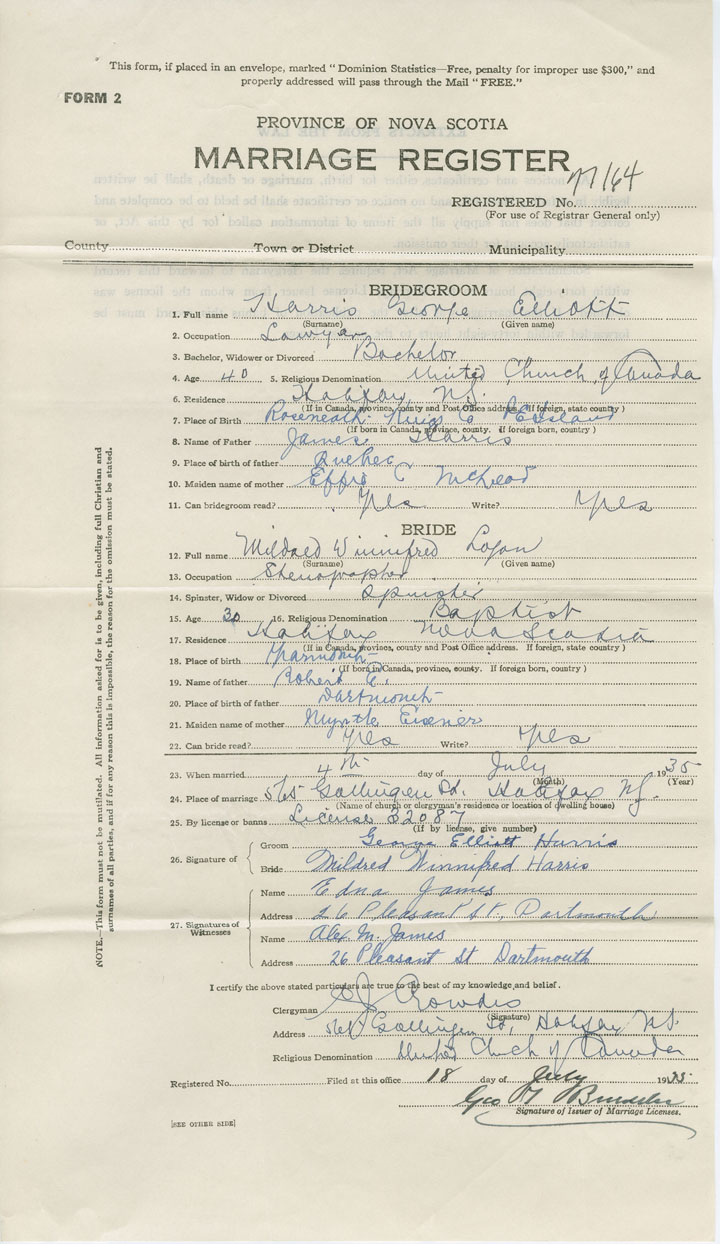 This form, if placed in an envelope, marked "Dominion Statistics—Free, penalty for improper use $300," and
properly addressed will pass through the Mail "FREE."
FORM 2
PROVINCE OF NOVA SCOTIA
MARRIAGE REGISTER
REGISTERED No.
(For use of Registrar General only)
County Town or District Municipality
BRIDEGROOM
1. Full name Harris George Elliott
(Surname) (Given name)
2. Occupation Lawyer
3. Bachelor, Widower or Divorced Bachelor
4. Age 40 5. Religious Denomination United Church of Canada
6. Residence Halifax N.S.
(If in Canada, province, county and Post Office address. If foreign, state country)
7. Place of Birth Roseneath Kings Co P.E Island
(If born in Canada, province, county. If foreign born, country)
8. Name of Father James Harris
9. Place of birth of father Quebec
10. Maiden name of mother Effie C McLeod
11. Can bridegroom read? Yes Write? Yes
BRIDE
12. Full name Mildred Winnifred Logan
(Surname) (Given name)
13. Occupation Stenographer
14. Spinster, Widow or Divorced Spinster
15. Age 30 16. Religious Denomination Baptist
17. Residence Halifax Nova Scotia
(If in Canada, province, county and Post Office address. If foreign, state country)
18. Place of birth
(If born in Canada, province, county. If foreign born, country)
19. Name of father Robert E.
20. Place of birth of father Dartmouth
21. Maiden name of mother Myrtle Eisener
22. Can bride read? Yes Write? Yes
23. When married 4th day of July 1935
(Month) (Year)
24. Place of marriage 565 Gottingen St. Halifax N.S.
(Name of church or clergyman's residence or location of dwelling house)
25. By license or banns License 32087
(If by license, give number)
26. Signature of Groom George Elliott Harris
Bride Mildred Winnifred Harris
27. Signatures of Witnesses
Name Edna James
Address 26 Pleasant St., Dartmouth
Name Alex M. James
Address 26 Pleasant St Dartmouth
I certify the above stated particulars are true to the best of my knowledge and belief.
Clergyman
(Signature)
Address 565 Gottingen St, Halifax N.S.
Religious Denomination United Church of Canada
Registered No. Filed at this office 18 day of July 1935
Geo
Signature of Issuer of Marriage Licenses.
[SEE OTHER SIDE]
NOTE.—This form must not be mutilated. All information asked for is to be given, including full Christian and
surnames of all parties, and if for any reason this is impossible, the reason for the omission must be stated.